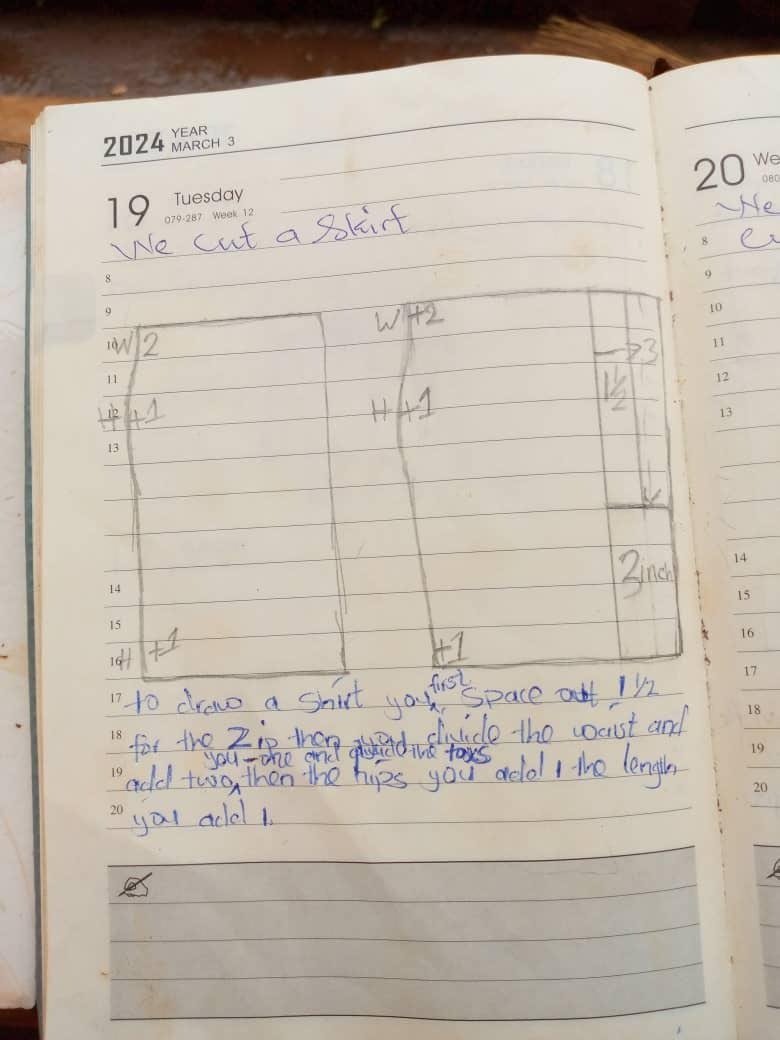 2024 YEAR
MARCH 3
19 Tuesday
079-287 Week 12
We cut a Skirt
8
9
10 W 2
11
12 H +1
13
14
15
16 H +1
W +2
H +1
+1
→ 3
1 1/2
3 inch
17 to draw a Skirt you first Space out 1 1/2
18 for the Zip then you divide the waist and
you - one and divide the
19 add two, then the hips you add 1 the length
20 you add 1.
20 We
080
We
8
9
10
11
12
13
14
15
16
17
18
19
20